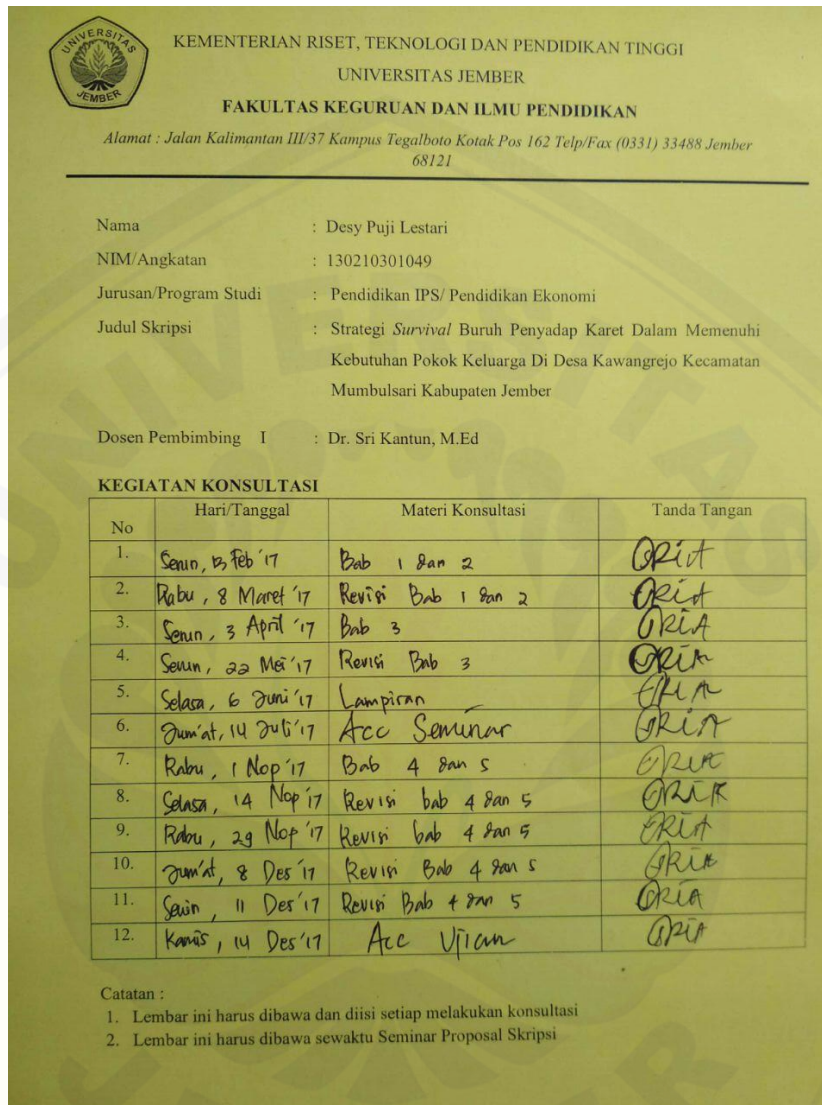 UNIVERSITAS
JEMBER
KEMENTERIAN RISET, TEKNOLOGI DAN PENDIDIKAN TINGGI
UNIVERSITAS JEMBER
FAKULTAS KEGURUAN DAN ILMU PENDIDIKAN
Alamat : Jalan Kalimantan III/37 Kampus Tegalboto Kotak Pos 162 Telp/Fax (0331) 33488 Jember
68121
Nama : Desy Puji Lestari
NIM/Angkatan : 130210301049
Jurusan/Program Studi : Pendidikan IPS/ Pendidikan Ekonomi
Judul Skripsi : Strategi Survival Buruh Penyadap Karet Dalam Memenuhi
Kebutuhan Pokok Keluarga Di Desa Kawangrejo Kecamatan
Mumbulsari Kabupaten Jember
Dosen Pembimbing I : Dr. Sri Kantun, M.Ed
KEGIATAN KONSULTASI
No Hari/Tanggal Materi Konsultasi Tanda Tangan
1. Senin, 13 Feb '17 Bab 1 dan 2
2. Rabu, 8 Maret '17 Revisi Bab 1 dan 2
3. Senin, 3 April '17 Bab 3
4. Senin, 22 Mei '17 Revisi Bab 3
5. Selasa, 6 Juni '17 Lampiran
6. Jum'at, 14 Juli '17 Acc Seminar
7. Rabu, 1 Nop '17 Bab 4 dan 5
8. Selasa, 14 Nop '17 Revisi bab 4 dan 5
9. Rabu, 29 Nop '17 Revisi bab 4 dan 5
10. Jum'at, 8 Des '17 Revisi Bab 4 dan 5
11. Senin, 11 Des '17 Revisi Bab 4 dan 5
12. Kamis, 14 Des '17 Acc Ujian
Catatan :
1. Lembar ini harus dibawa dan diisi setiap melakukan konsultasi
2. Lembar ini harus dibawa sewaktu Seminar Proposal Skripsi